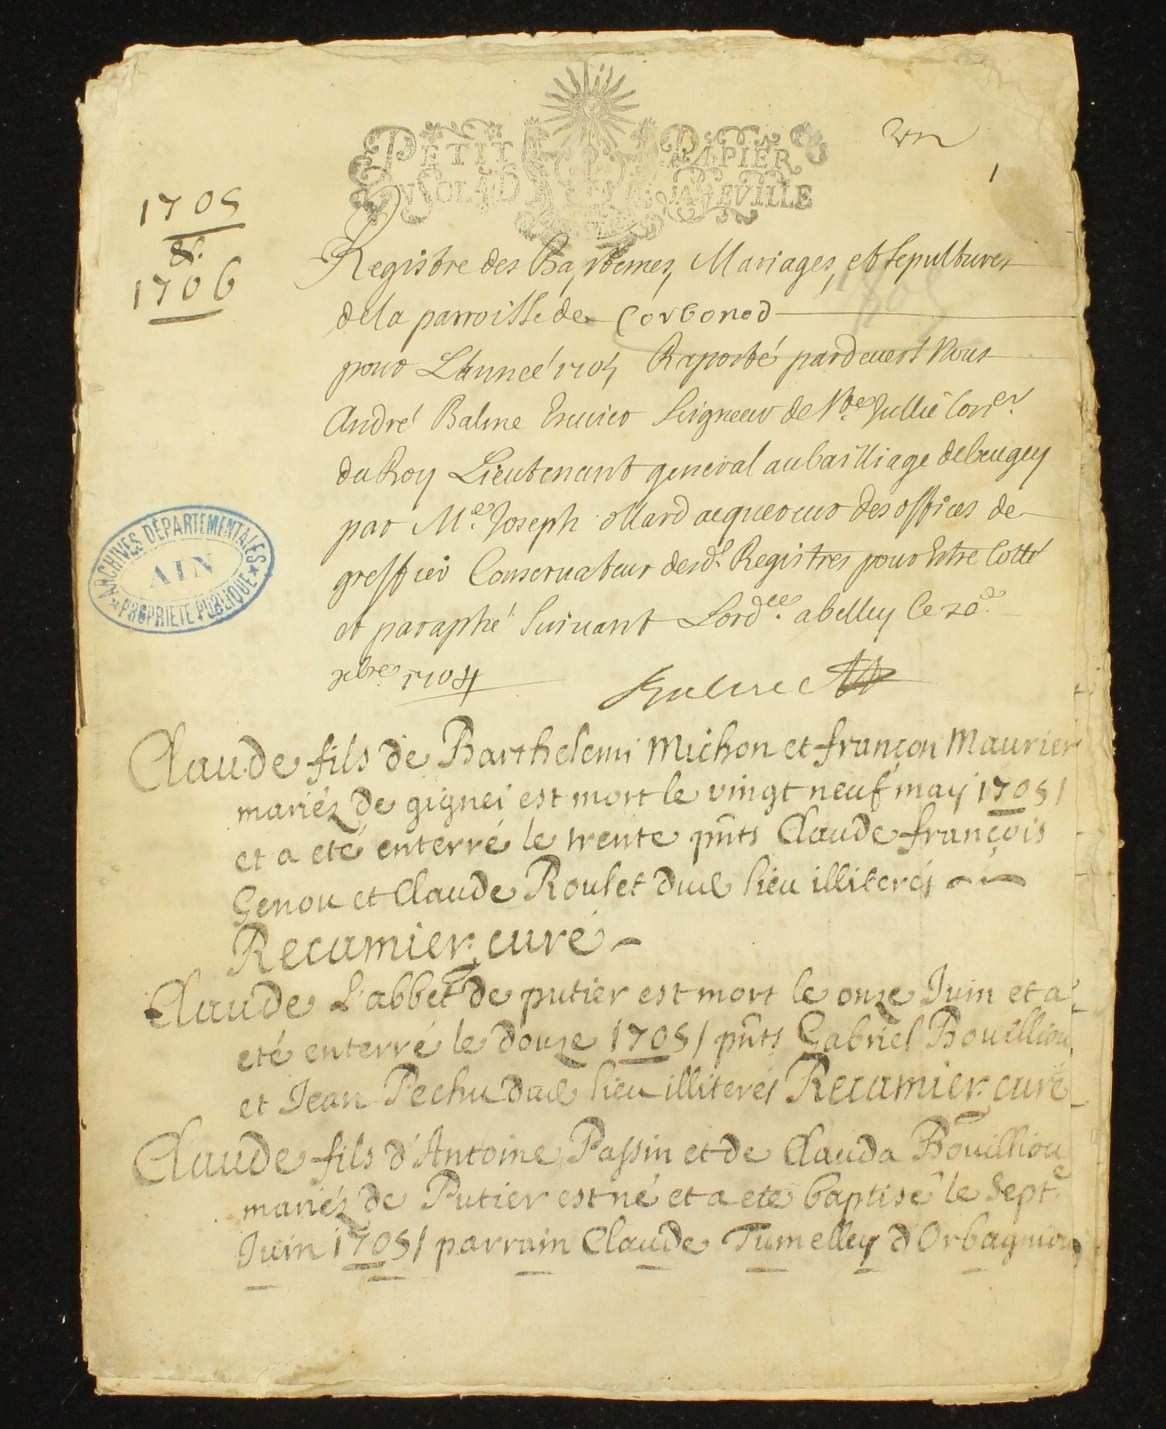 PETIT PAPIER
un
1
1705
&
1706
Registre des Baptemes, Mariages, et sepultures
de la parroisse de Corbonod
pour L'année 1705 Raporté pardevers Nous
André Balme Escuier Seigneur de Ste Jullie Conser
du Roy Lieutenant general au bailliage de beugey
par Me Joseph ollard acquereur des offices de
greffier Conservateur desd. Registres pour Estre Cotté
et paraphé Suivant Lordce a belley le 20e
xbre 1704
Balme
ARCHIVES DÉPARTEMENTALES
AIN
PROPRIÉTÉ PUBLIQUE
Claude fils de Barthelemi Michon et françon Maurier
mariéz de gignei est mort le vingt neuf may 1705/
et a eté enterré le trente pnts Claude françois
Genou et Claude Roulet dud lieu illiterés
Recamier, curé
Claude L'abbet de putier est mort le onze Juin et a
eté enterré le douze 1705/ pnts Gabriel Bouilliou
et Jean Pechu dud lieu illiterés Recamier, curé
Claude fils d'Antoine Passin et de Clauda Bouilliou
mariéz de Putier est né et a eté baptisé le Sept
Juin 1705/ parrain Claude Tumelley d'Orbagnou